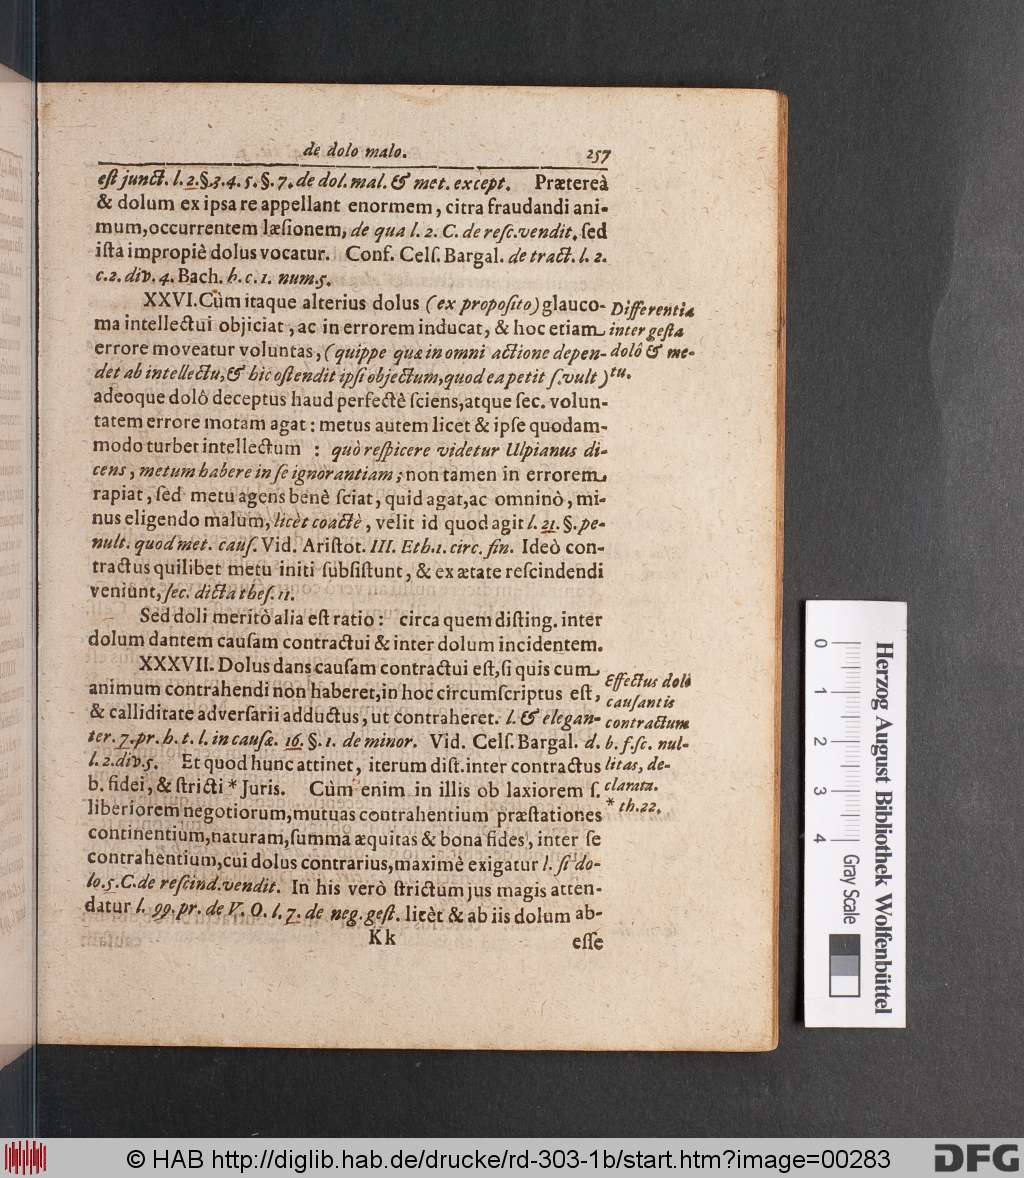 de dolo malo. 257
eſt junct. l. 2. §. 3. 4. 5. §. 7. de dol. mal. & met. except. Prætereà
& dolum ex ipsa re appellant enormem, citra fraudandi ani-
mum, occurrentem læſionem, de qua l. 2. C. de reſc. vendit. ſed
iſta impropiè dolus vocatur. Conf. Celſ. Bargal. de tract. l. 2.
c. 2. div. 4. Bach. h. c. 1. num. 5.
XXVI. Cùm itaque alterius dolus (ex propoſito) glauco-
ma intellectui objiciat, ac in errorem inducat, & hoc etiam
errore moveatur voluntas, (quippe quæ in omni actione depen-
det ab intellectu, & hic oſtendit ipſi objectum, quod ea petit ſ. vult)
adeoque dolô deceptus haud perfectè ſciens, atque ſec. volun-
tatem errore motam agat: metus autem licet & ipſe quodam-
modo turbet intellectum : quò reſpicere videtur Ulpianus di-
cens, metum habere in ſe ignorantiam; non tamen in errorem
rapiat, ſed metu agens benè ſciat, quid agat, ac omninò, mi-
nus eligendo malum, licèt coactè, velit id quod agit l. 21. §. pe-
nult. quod met. cauſ. Vid. Ariſtot. III. Eth. 1. circ. fin. Ideò con-
tractus quilibet metu initi ſubſiſtunt, & ex ætate reſcindendi
veniunt, ſec. dicta theſ. 11.
Sed doli meritò alia eſt ratio: circa quem diſting. inter
dolum dantem cauſam contractui & inter dolum incidentem.
XXXVII. Dolus dans cauſam contractui eſt, ſi quis cum
animum contrahendi non haberet, in hoc circumſcriptus eſt,
& calliditate adverſarii adductus, ut contraheret. l. & elegan-
ter. 7. pr. h. t. l. in cauſæ. 16. §. 1. de minor. Vid. Celſ. Bargal. d.
l. 2. div. 5. Et quod hunc attinet, iterum diſt. inter contractus
b. fidei, & ſtricti * Juris. Cùm enim in illis ob laxiorem ſ.
liberiorem negotiorum, mutuas contrahentium præſtationes
continentium, naturam, ſumma æquitas & bona fides, inter ſe
contrahentium, cui dolus contrarius, maximè exigatur l. ſi do-
lo. 5. C. de reſcind. vendit. In his verò ſtrictum jus magis atten-
datur l. 99. pr. de V. O. l. 7. de neg. geſt. licèt & ab iis dolum ab-
Kk eſſe
Differentia
inter geſta
dolô & me-
tu.
Effectus dolô
cauſantis
contractum
b. f. ſc. nul-
litas, de-
clarata.
* th. 22.
0 1 2 3 4
Gray Scale
Herzog August Bibliothek Wolfenbüttel
© HAB http://diglib.hab.de/drucke/rd-303-1b/start.htm?image=00283
DFG